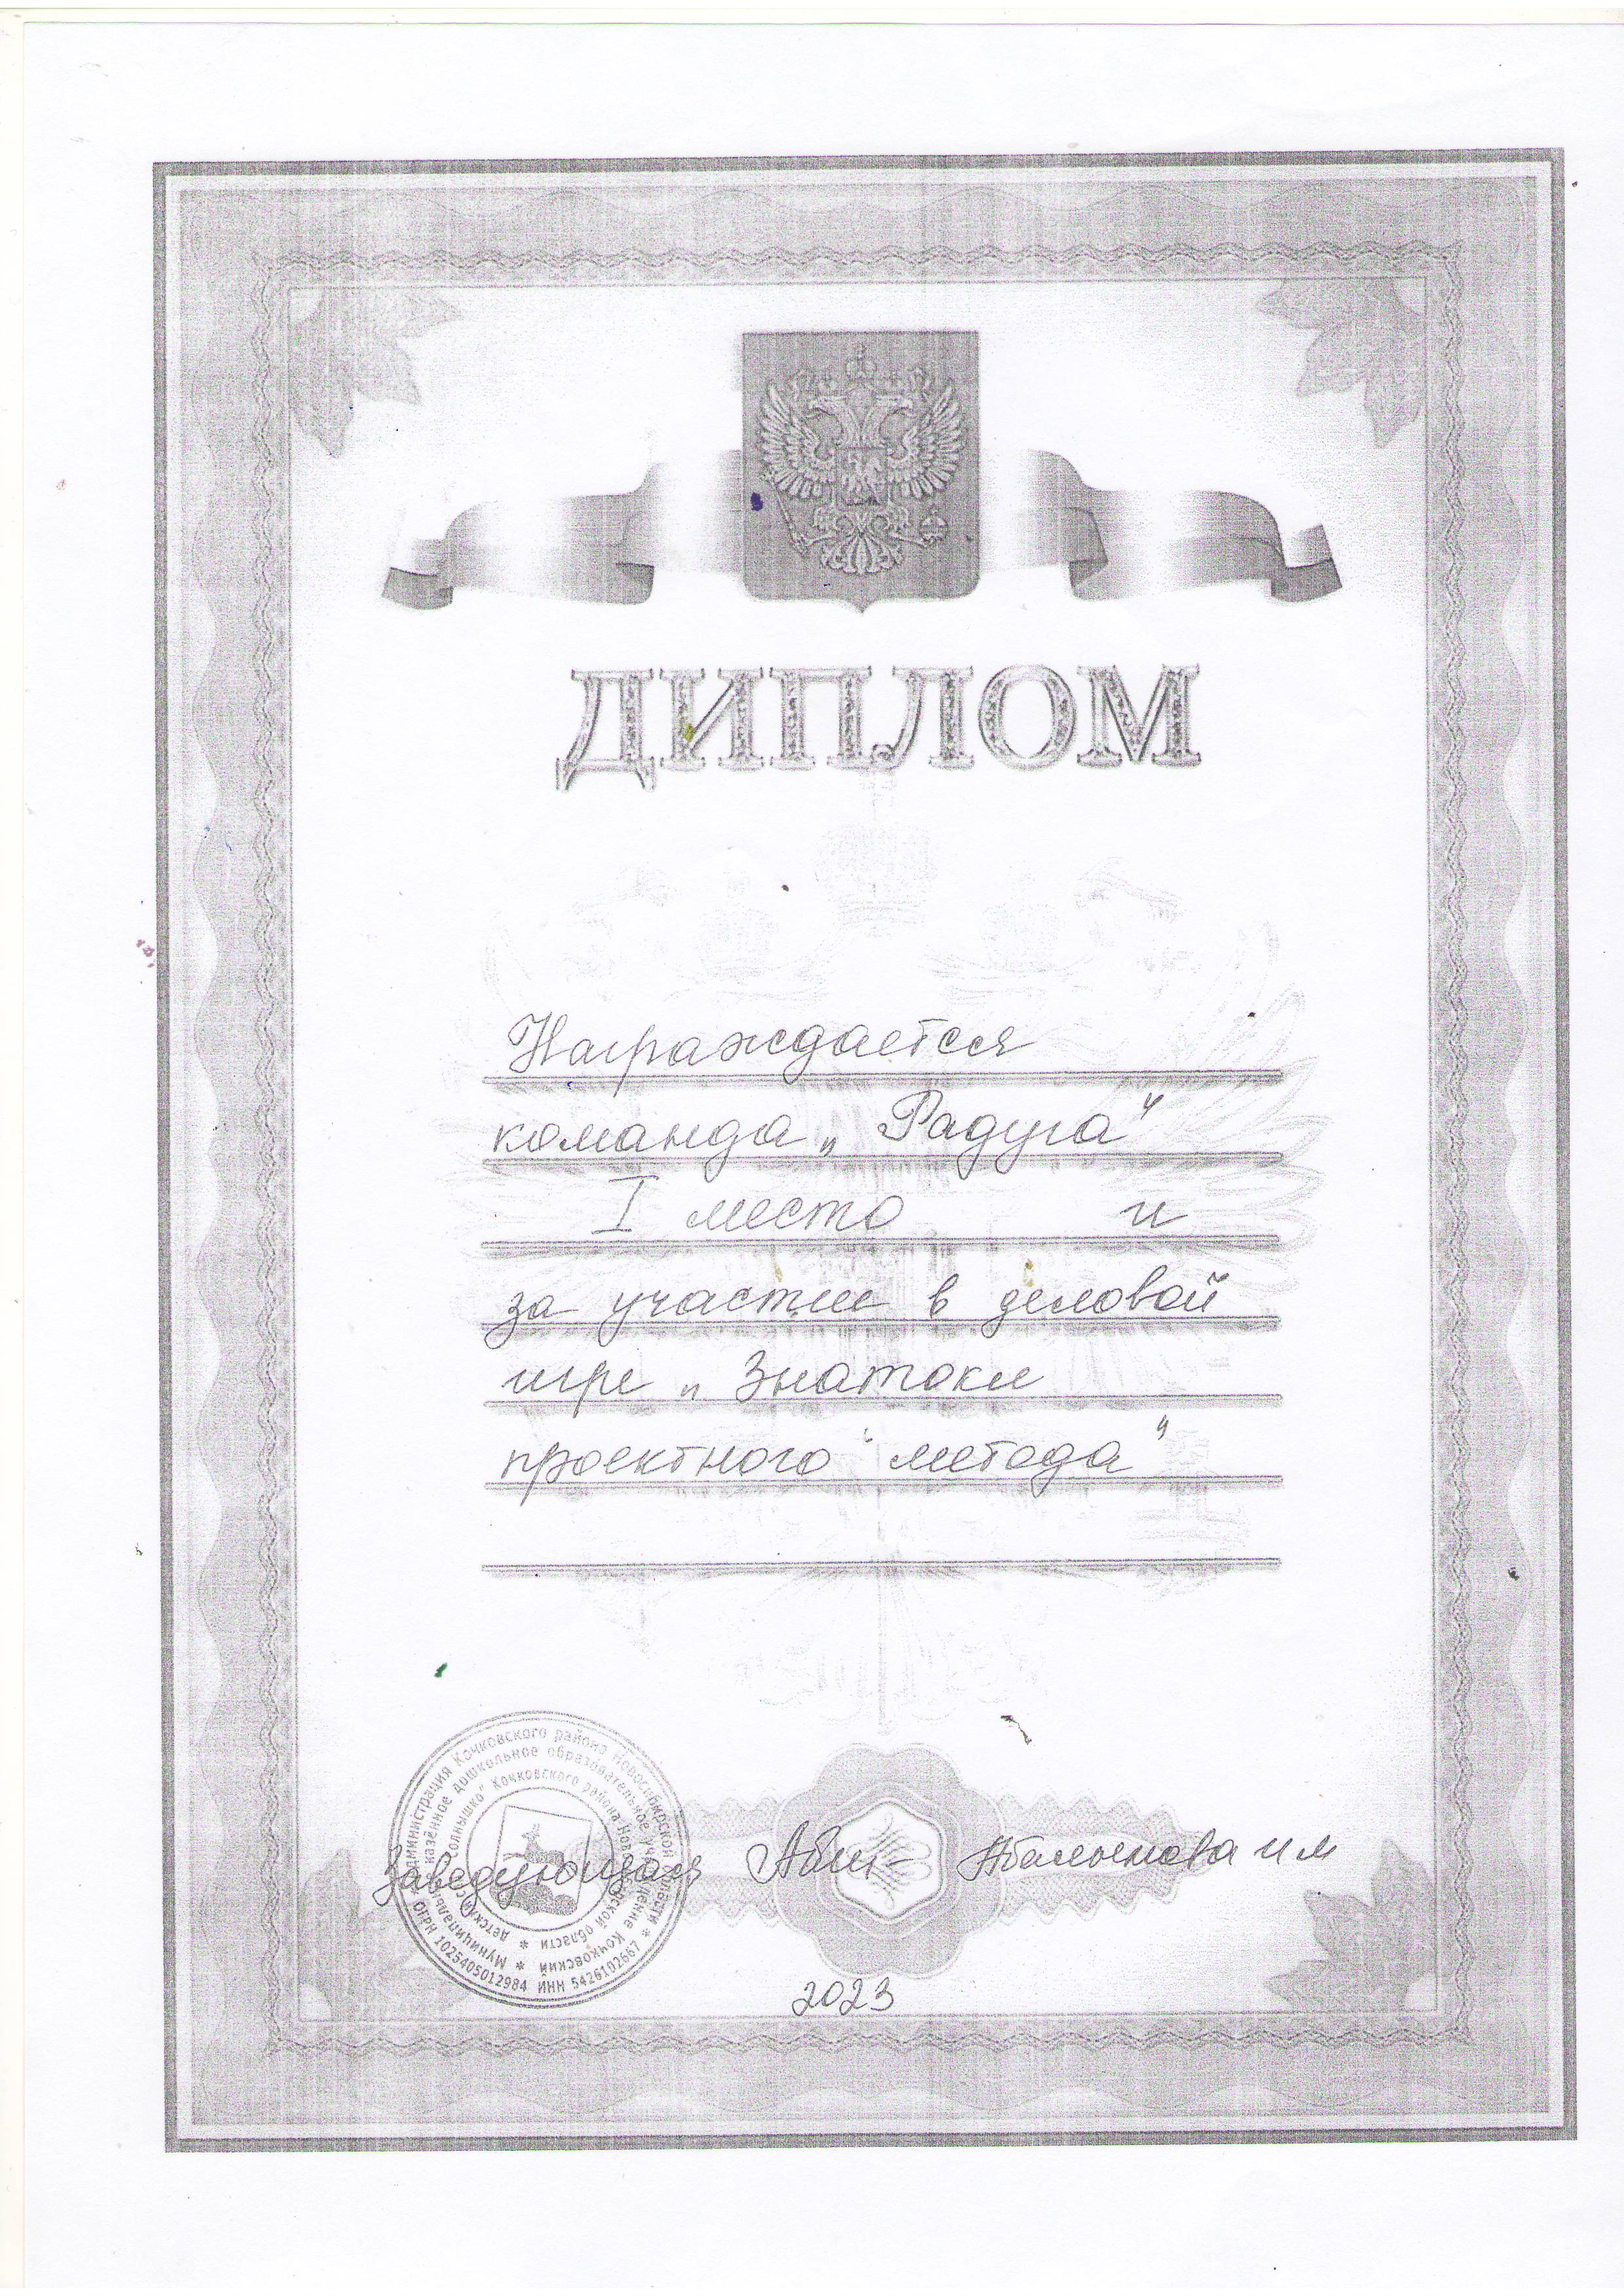 ДИПЛОМ
Награждается
команда „Радуга“
I место и
за участие в деловой
игре „Знатоки
проектного метода“
Администрация Кочковского района Новосибирской области *
Муниципальное казённое дошкольное образовательное учреждение Кочковский *
детский сад "Солнышко" Кочковского района Новосибирской области *
* ОГРН 1025405012984 ИНН 5426102667 *
Заведующая
2023